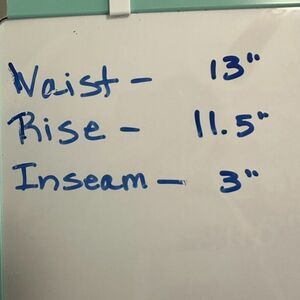 Waist - 13"
Rise - 11.5"
Inseam - 3"